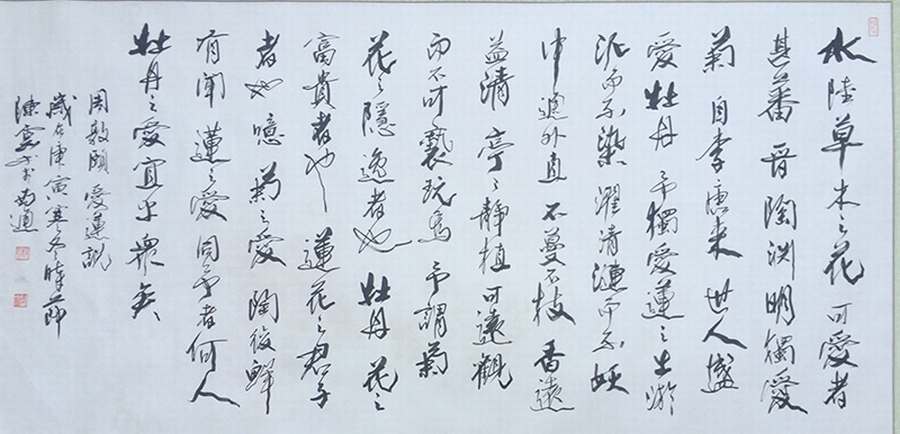 水陸草木之花可愛者
甚蕃晉陶淵明獨愛
菊自李唐來世人盛
愛牡丹予獨愛蓮之出淤
泥而不染濯清漣而不妖
中通外直不蔓不枝香遠
益清亭〻靜植可遠觀
而不可褻玩焉予謂菊
花之隱逸者也牡丹花之
富貴者也蓮花之君子
者也噫菊之愛陶後鮮
有聞蓮之愛同予者何人
牡丹之愛宜乎眾矣
周敦頤愛蓮說
歲在庚寅寒冬時節
陳於南通